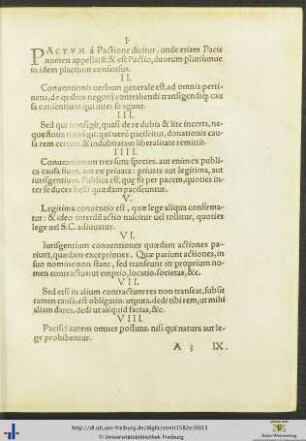 I.
PACTVM à Pactione dicitur, unde etiam Pacis
nomen appellatū: & est Pactio, duorum pluriumue
in idem placitum consensus.
II.
Conuentionis uerbum generale est, ad omnia perti
nens, de quibus negotij contrahendi transigendiq; cau
sa consentiunt qui inter se agunt.
III.
Sed qui transigit, quasi de re dubia & lite incerta, ne-
que finita transigit: qui uerò paciscitur, donationis cau-
sa rem certam & indubitatam liberalitate remittit.
IIII.
Conuentionum tres sunt species. aut enim ex publica
causa fiunt, aut ex priuata: priuata aut legitima, aut
iurisgentium. Publica est, quæ fit per pacem, quoties in-
ter se duces belli quædam paciscuntur.
V.
Legitima conuentio est, quæ lege aliqua confirma-
tur: & ideo interdū actio nascitur uel tollitur, quoties
lege uel S.C. adiuuatur.
VI.
Iurisgentium conuentiones quædam actiones pa-
riunt, quædam exceptiones. Quæ pariunt actiones, in
suo nomine non stant, sed transeunt in proprium no-
men contractus: ut emptio, locatio, societas, &c.
VII.
Sed etsi in alium contractum res non transeat, subsit
tamen causa, est obligatio. utputa, dedi tibi rem, ut mihi
aliam dares, dedi ut aliquid facias, &c.
VIII.
Pacisci autem omnes possunt, nisi qui natura aut le-
ge prohibentur.
A 3 IX.
http://dl.ub.uni-freiburg.de/diglit/
© Universitätsbibliothek Freiburg
Baden-Württemberg